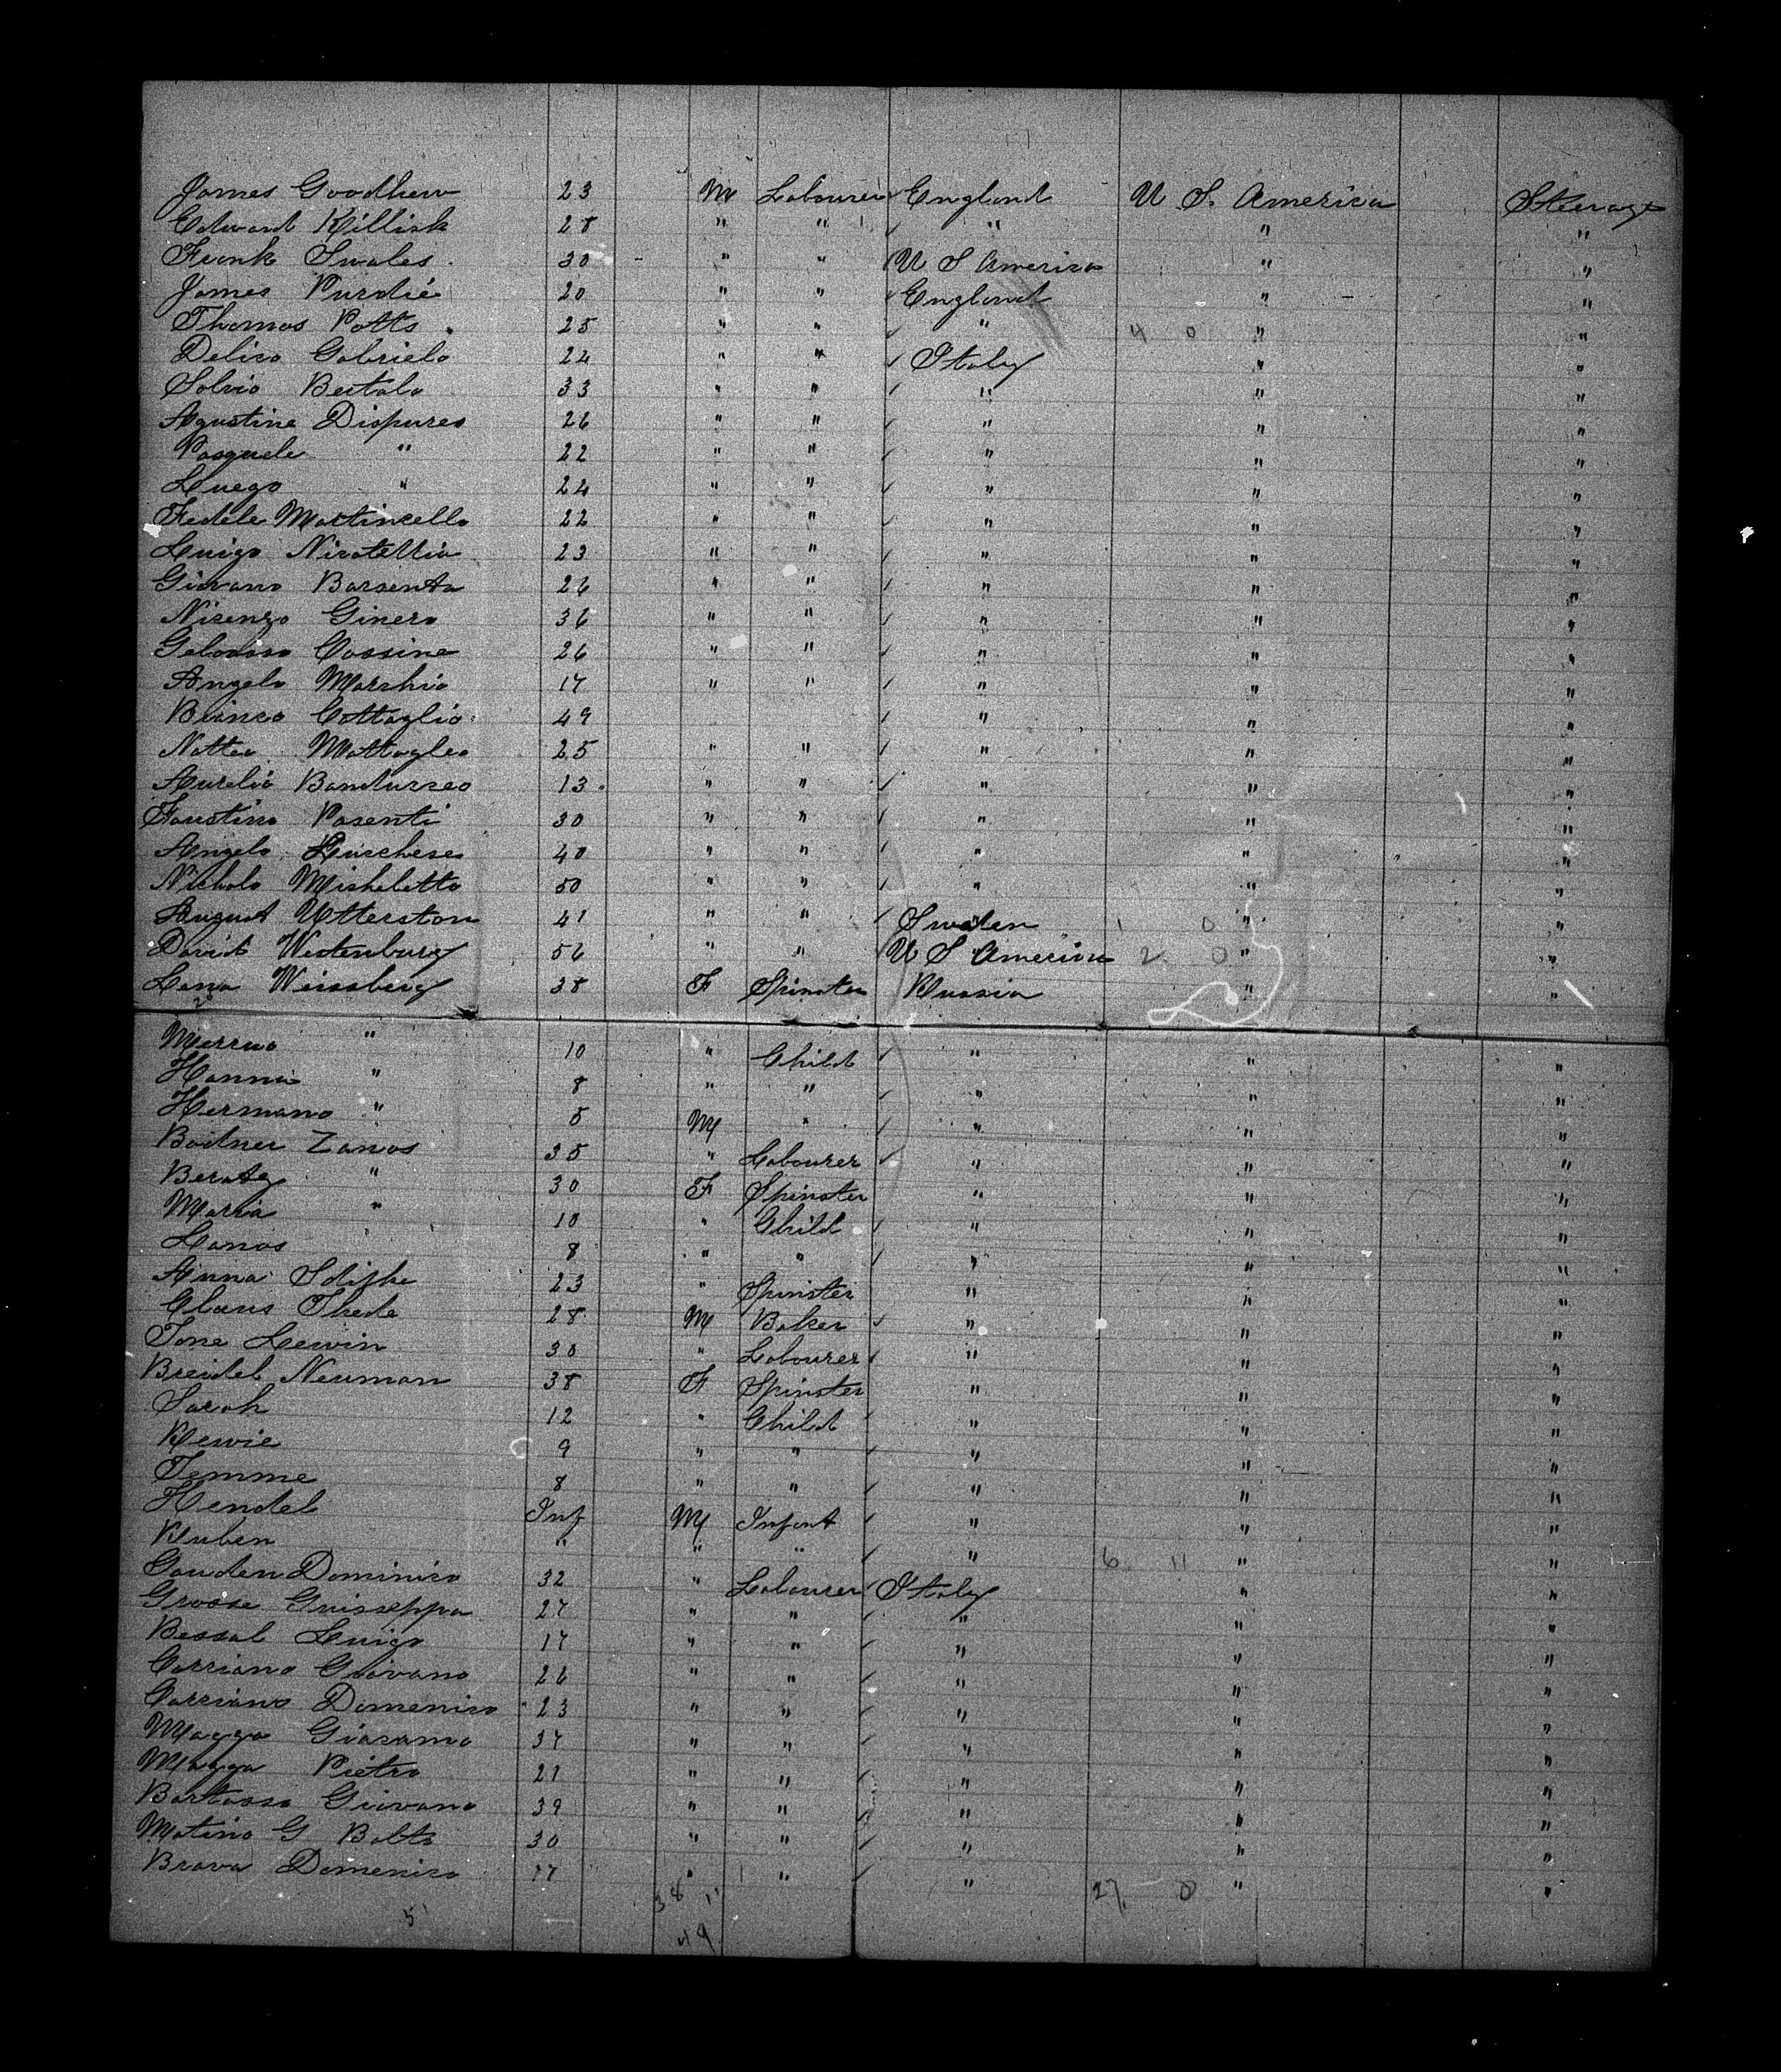 James Goodhew 23 M Labourer England U S. America Steerage
Edward Killick 28 " " " " "
Frank Swales 30 " " U S America " "
James Purdie 20 " " England " "
Thomas Potts 25 " " " 4 0 " "
Delico Gabriele 24 " " Italy " "
Solvio Bertolo 33 " " " " "
Agustine Dispures 26 " " " " "
Pasquale " 22 " " " " "
Luego " 24 " " " " "
Fedele Martincello 22 " " " " "
Luigo Nicotellia 23 " " " " "
Giovano Barsenta 26 " " " " "
Nicenzo Ginero 36 " " " " "
Cossine 26 " " " " "
Angelo Marchio 17 " " " " "
Bianco Cottaglio 49 " " "
Natteo Mattagleo 25 " " " " "
Aurelio Bandurseo 13 " " " " "
Faustino Pasenti 30 " " " " "
Angelo Lucchese 40 " " " " "
Nicholo Micheletto 50 " " " " "
August Utterston 41 " " Sweden 1 0 " "
David Westenburg 56 " " U S America 2 0 " "
Lena Weissberg 38 F Spinster Russia " "
" 10 " Child " " "
Hanna " 8 " " " " "
Hermano " 5 M " " " "
Boitner Zanos 35 " Labourer " " "
" 30 F Spinster " " "
Maria " 10 " Child " " "
Lanos 8 " " " " "
Anna 23 " Spinster " " "
Claus Thede 28 M Baker " " "
Tone Lewin 30 " Labourer " " "
Breidel Neuman 38 F Spinster " " "
Sarah 12 " Child " " "
Rewie 9 " " " " "
Temme 8 " " " " "
Hendel Inf M Infant " " "
Ruben " " " " 6 11 " "
Gauden Dominico 32 " Labourer Italy " "
Grosse Guisseppa 27 " " " " "
Bessal Luigo 17 " " " " "
Carriano Giovano 26 " " " " "
Carriano Domenico 23 " " " " "
Magga Giacamo 37 " " " " "
Magga Pietro 21 " " " " "
Bartasso Giovano 39 " " " " "
Matino G Balto 30 " " " " "
Brava Domenico 17 " " " 27 0 " "
38 11
51
49